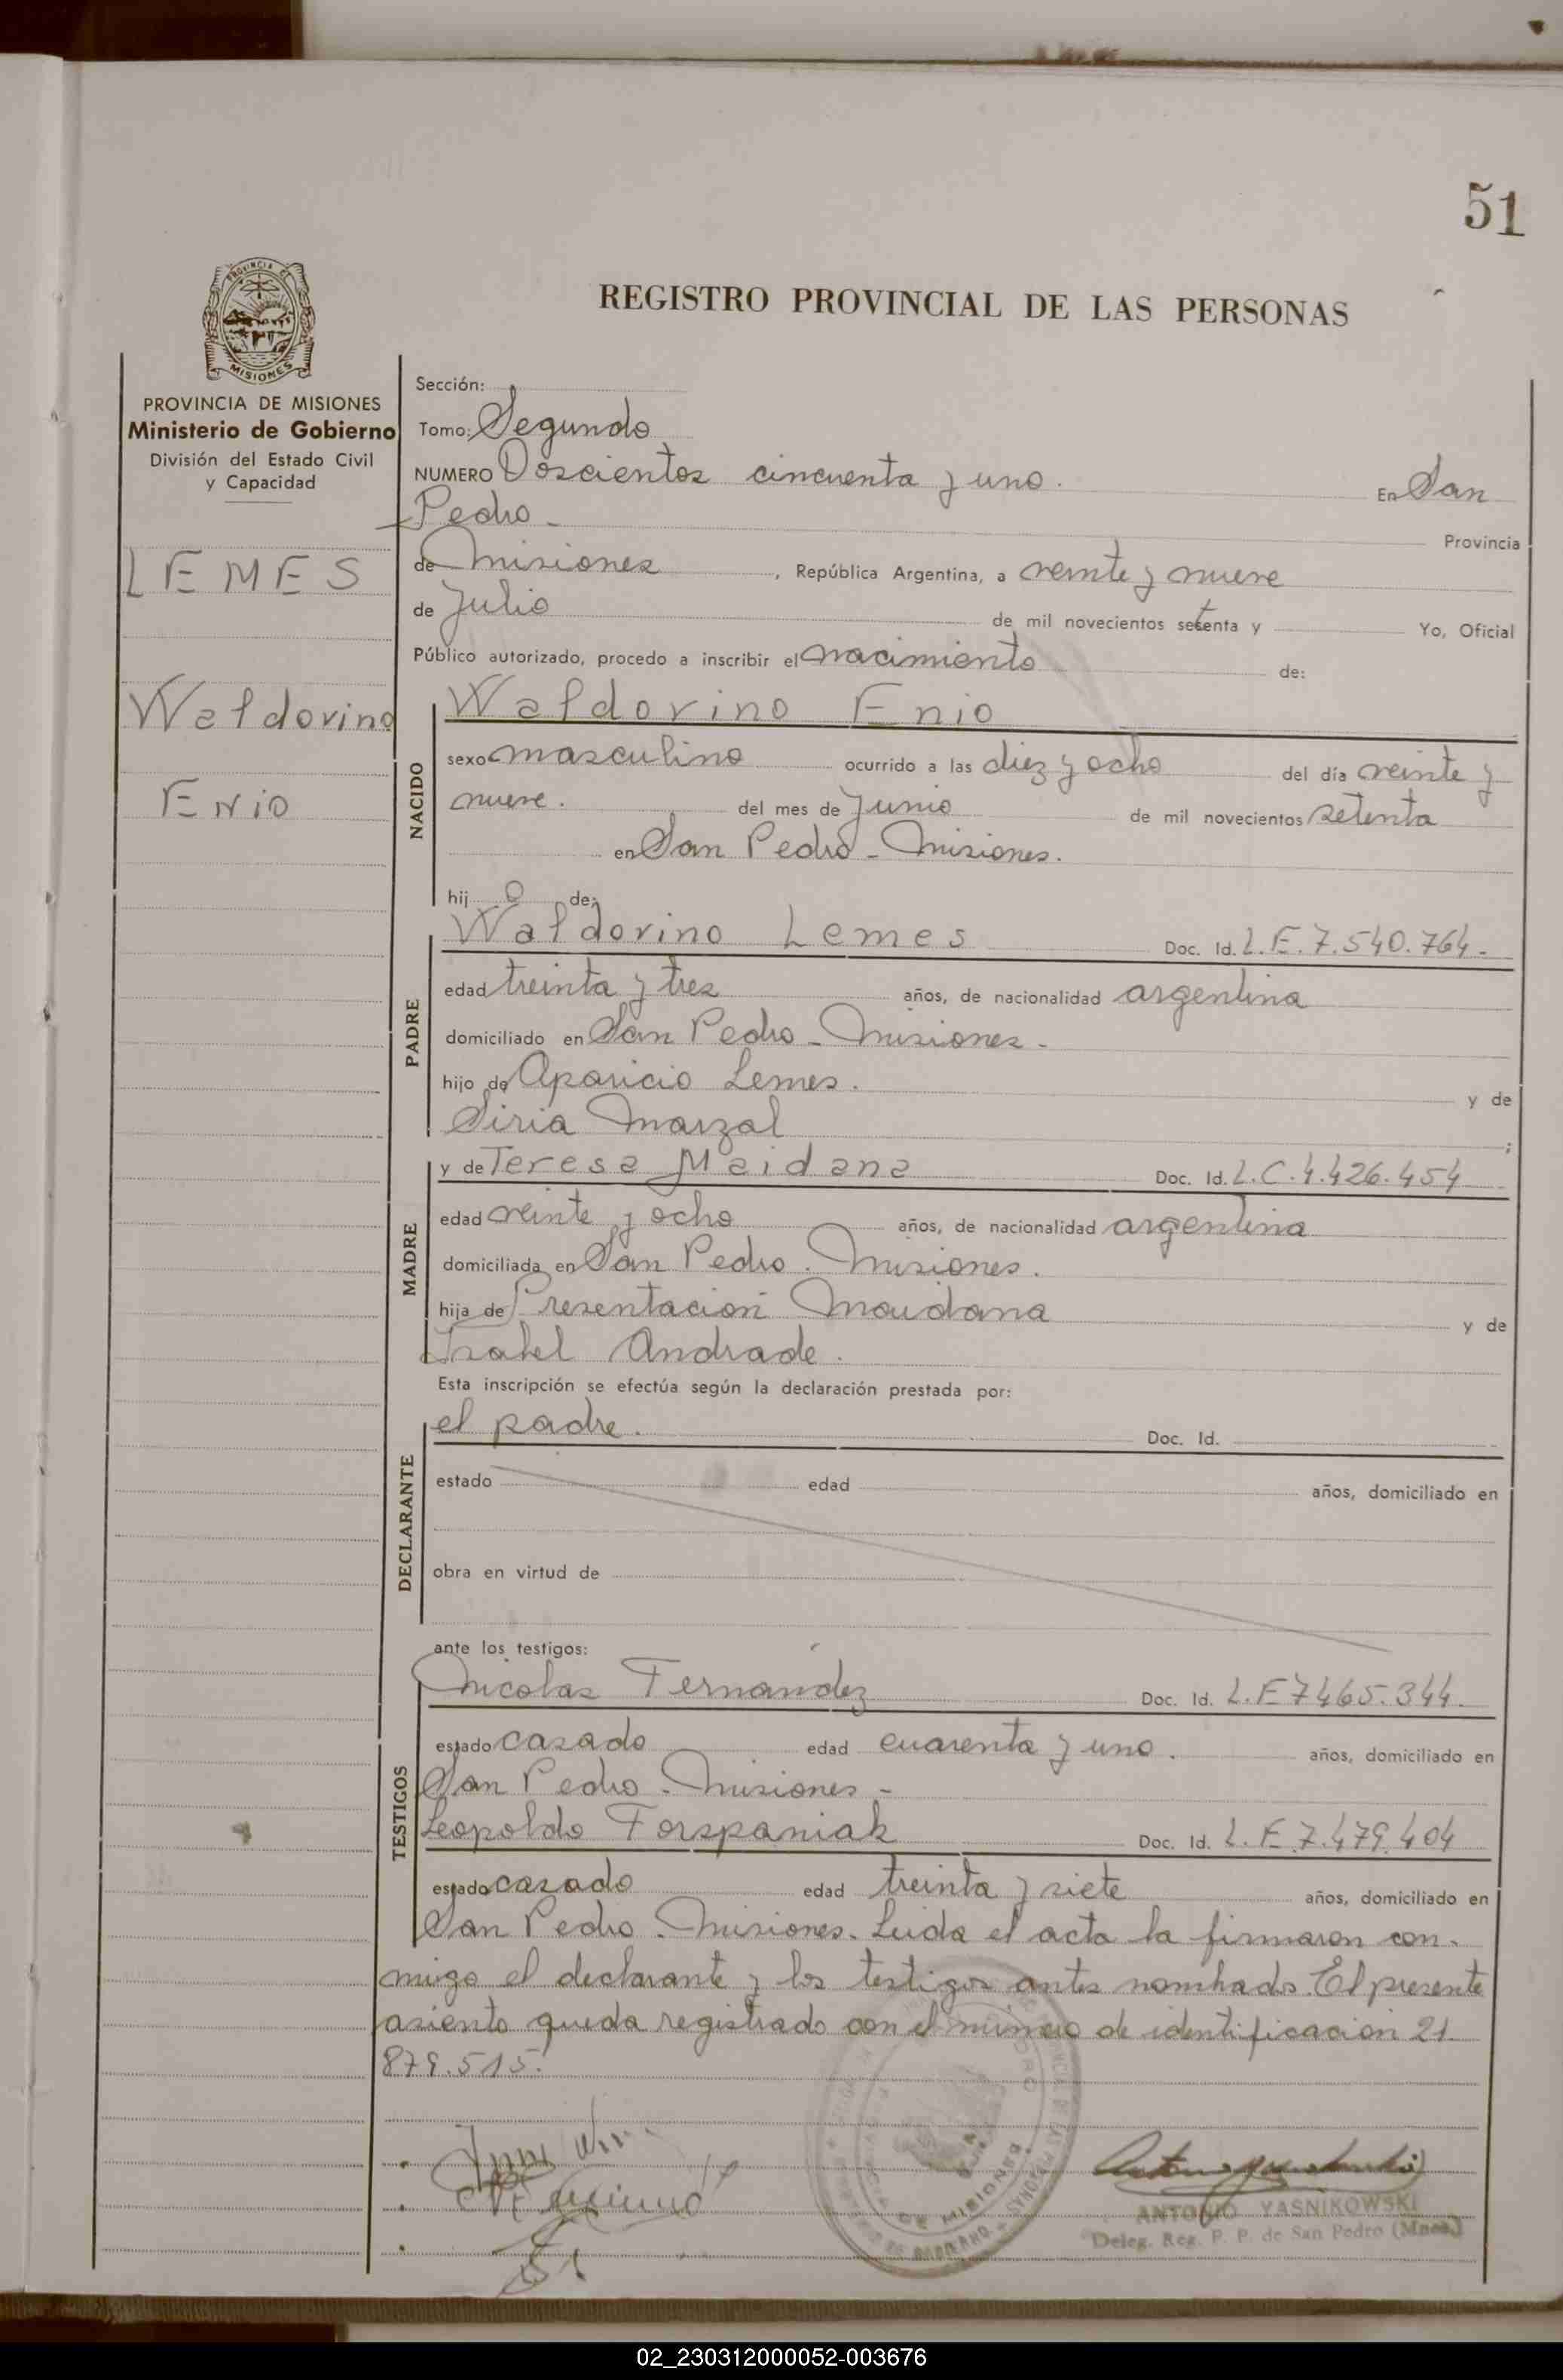 51
PROVINCIA DE
MISIONES
REGISTRO PROVINCIAL DE LAS PERSONAS
PROVINCIA DE MISIONES
Ministerio de Gobierno
División del Estado Civil
y Capacidad
LEMES
Waldovino
ENiO
Sección:
Tomo: Segundo
NUMERO Doscientos cincuenta y uno. En San
Pedro - Provincia
de Misiones, República Argentina, a veinte y nueve
de Julio de mil novecientos setenta y Yo, Oficial
Público autorizado, procedo a inscribir el nacimiento de:
NACIDO
Waldovino Enio
sexo masculino ocurrido a las diez y ocho del día veinte y
nueve. del mes de Junio de mil novecientos setenta
en San Pedro - Misiones.
hij o de:
PADRE
Waldovino Lemes Doc. Id. L.E. 7.540.764-
edad treinta y tres años, de nacionalidad argentina
domiciliado en San Pedro - Misiones -
hijo de Aparicio Lemes. y de
Siria Marzal ;
MADRE
y de Teresa Maidana Doc. Id. L.C. 4.426.454
edad veinte y ocho años, de nacionalidad argentina
domiciliada en San Pedro. Misiones.
hija de Presentación Maidana y de
Isabel Andrade.
Esta inscripción se efectúa según la declaración prestada por:
DECLARANTE
el padre. Doc. Id.
estado edad años, domiciliado en
obra en virtud de
ante los testigos:
TESTIGOS
Nicolas Fernandez Doc. Id. L.E 7465.344.
estado casado edad cuarenta y uno. años, domiciliado en
San Pedro - Misiones -
Leopoldo Forspaniak Doc. Id. L.E.7.479.404
estado casado edad treinta y siete años, domiciliado en
San Pedro. Misiones. Leida el acta la firmaron con-
migo el declarante y los testigos antes nombrados. El presente
asiento queda registrado con el número de identificación 21.
879.515.
DE MISIONES
ANTONIO YASNIKOWSKI
Deleg. Reg. P. P. de San Pedro (Mnes.)
02_230312000052-003676